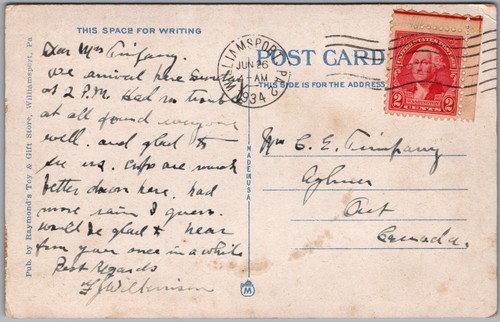 THIS SPACE FOR WRITING
Dear Mrs Timpany.
We arrived here Sunday
at 2 P.M. Had no trouble
at all found everyone
well. and glad to
see us. Crops are much
better down here. had
more rain I guess.
would be glad to hear
from you once in a while
Best Regards
Wilkinson
Pub. by Raymond's Toy & Gift Store, Williamsport, Pa
MADE IN U.S.A.
M
WILLIAMSPORT, PA.
JUN 26
-AM
1934
POST CARD
THIS SIDE IS FOR THE ADDRESS
2 2
Mrs C. E. Timpany
Aylmer
Ont
Canada.